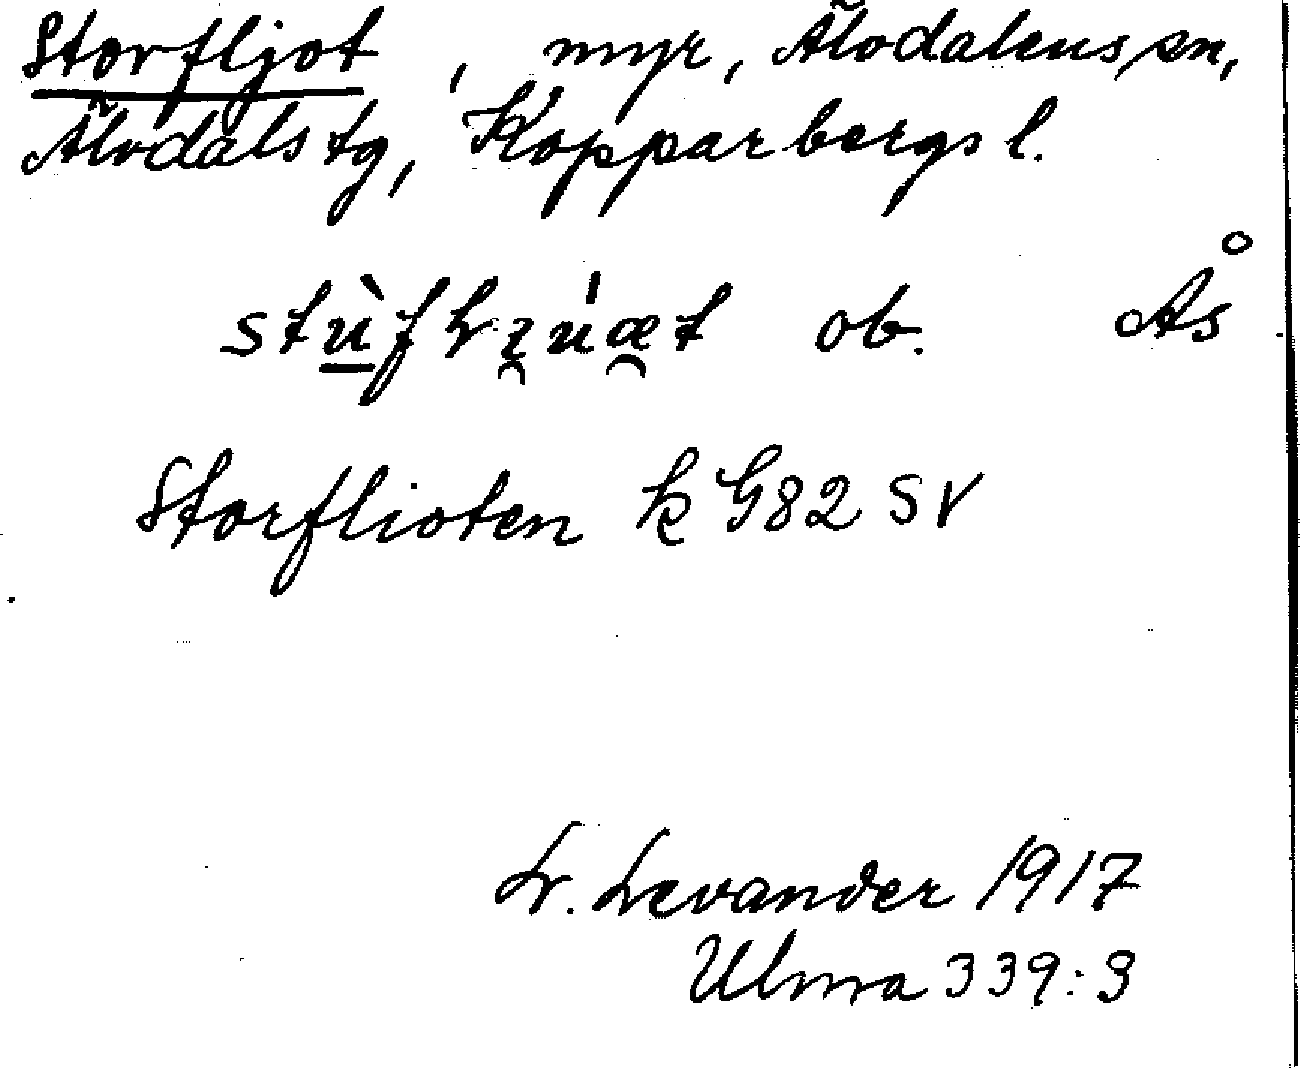 Storfljot, myr, Älvdalens sn,
Älvdals tg, Kopparbergs l.
ob. Ås
Storflioten k G82 SV
L. Levander 1917
Ulma 339:3